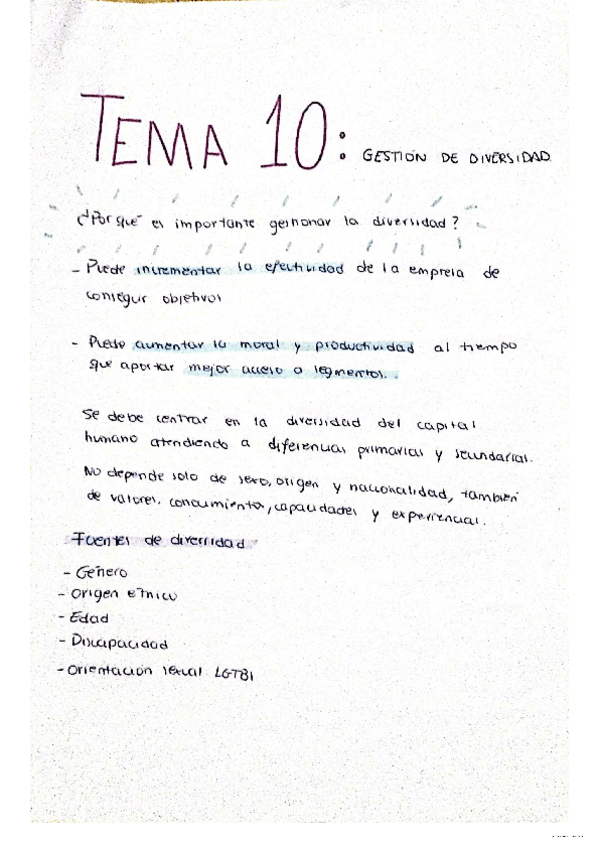 TEMA 10: GESTIÓN DE DIVERSIDAD
¿Por qué es importante gestionar la diversidad?
- Puede incrementar la efectividad de la empresa de
conseguir objetivos
- Puede aumentar la moral y productividad al tiempo
que aportar mejor acceso a segmentos.
Se debe centrar en la diversidad del capital
humano atendiendo a diferencias primarias y secundarias.
No depende solo de sexo, origen y nacionalidad, también
de valores, conocimiento, capacidades y experiencias.
Fuentes de diversidad
- Género
- Origen étnico
- Edad
- Discapacidad
- Orientación sexual LGTBI